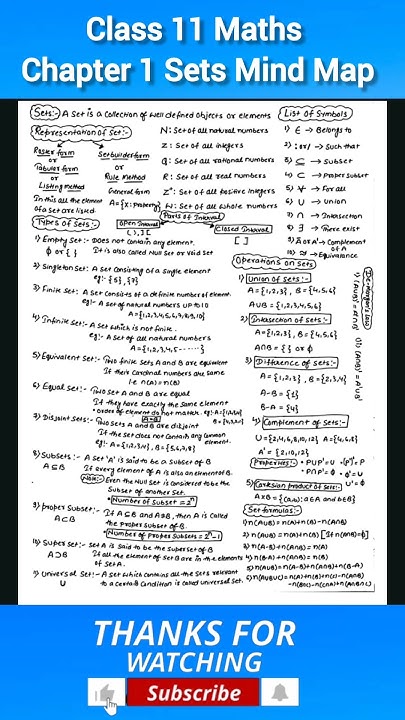 Class 11 Maths
Chapter 1 Sets Mind Map
Sets:- A Set is a Collection of well defined objects or elements
Representation of Set:-
Roster form
or
Tabular form
or
Listing method
In this all the element
of a set are listed
Set builder form
or
Rule Method
General form
A = {x: property}
N: Set of all natural numbers
Z: Set of all integers
Q: Set of all rational numbers
R: Set of all real numbers
Z⁺: Set of all Positive integers
W: Set of all whole numbers
Parts of Interval
Open Interval
( ), ] [
Closed Interval
[ ]
Types of Sets:-
1) Empty Set:- Does not Contain any element.
ϕ or { } It is also called Null Set or Void Set
2) Singleton Set:- A set Consisting of a single element
eg:- {5}, {7}
3) Finite Set: A Set Consists of a definite number of element.
eg:- A set of natural numbers UP to 10
A={1,2,3,4,5,6,7,8,9,10}
4) Infinite Set:- A set which is not finite.
eg:- A set of all natural numbers
A={1,2,3,4,5------}
5) Equivalent Set:- Two finite sets A and B are equivalent
If their Cardinal numbers are same
i.e n(A)=n(B)
6) Equal set:- Two set A and B are equal
If they have exactly the same element
• order of element do not matter. eg:- A={1,2,3,4}
A=B B={4,3,2,1}
7) Disjoint Sets:- Two sets A and B are disjoint
If the set does not Contain any Common
element.
eg:- A={1,2,3,4}, B={5,6,7,8}
8) Subsets:- A set 'A' is said to be a Subset of B
A⊆B If every element of A is also an element of B.
Note:- Even the Null set is Considered to be the
Subset of another Set.
• Number of Subset = 2ⁿ
9) Proper Subset:- If A⊆B and A≠B, then A is Called
A⊂B the proper Subset of B.
• Number of Proper Subsets = 2ⁿ-1
10) Super set:- set A is said to be the superset of B
A⊃B If all the element of Set B are in the elements
of Set A.
11) Universal Set:- A set which contains all the Sets relevant
U to a Certain Condition is called universal Set.
List Of Symbols
1) ∈ → Belongs to
2) : or / → Such that
3) ⊆ → Subset
4) ⊂ → Proper Subset
5) ∀ → For all
6) ∪ → Union
7) ∩ → Intersection
8) ∃ → There exist
9) Ā or A' → Complement
of A
10) ≈ → Equivalance
Operations on Sets
1) Union of Sets:-
A={1,2,3}, B={4,5,6}
A∪B={1,2,3,4,5,6}
2) Intersection of Sets:-
A={1,2,3}, B={4,5,6}
A∩B={ } or ϕ
3) Difference of Sets:-
A={1,2,3}, B={2,3,4}
A-B={1}
B-A={4}
4) Complement of Sets:-
U={2,4,6,8,10,12} A={4,6,8}
A'={2,10,12}
Properties:- • P∪P'=U • (P')'=P
• P∩P'=ϕ • ϕ'=U
• U'=ϕ
5) Cartesian Product of Sets:-
A×B={(a,b):a∈A and b∈B}
De-Morgan's Law
i) (A∪B)'=A'∩B' ii) (A∩B)'=A'∪B'
Set formulas:-
1) n(A∪B)=n(A)+n(B)-n(A∩B)
2) n(A∪B)=n(A)+n(B) [If n(A∩B)=ϕ]
3) n(A-B)+n(A∩B)=n(A)
4) n(B-A)+n(A∩B)=n(B)
5) n(A∪B)=n(A-B)+n(A∩B)+n(B-A)
6) n(A∪B∪C)=n(A)+n(B)+n(C)-n(A∩B)
-n(B∩C)-n(C∩A)+n(A∩B∩C)
THANKS FOR
WATCHING
Subscribe